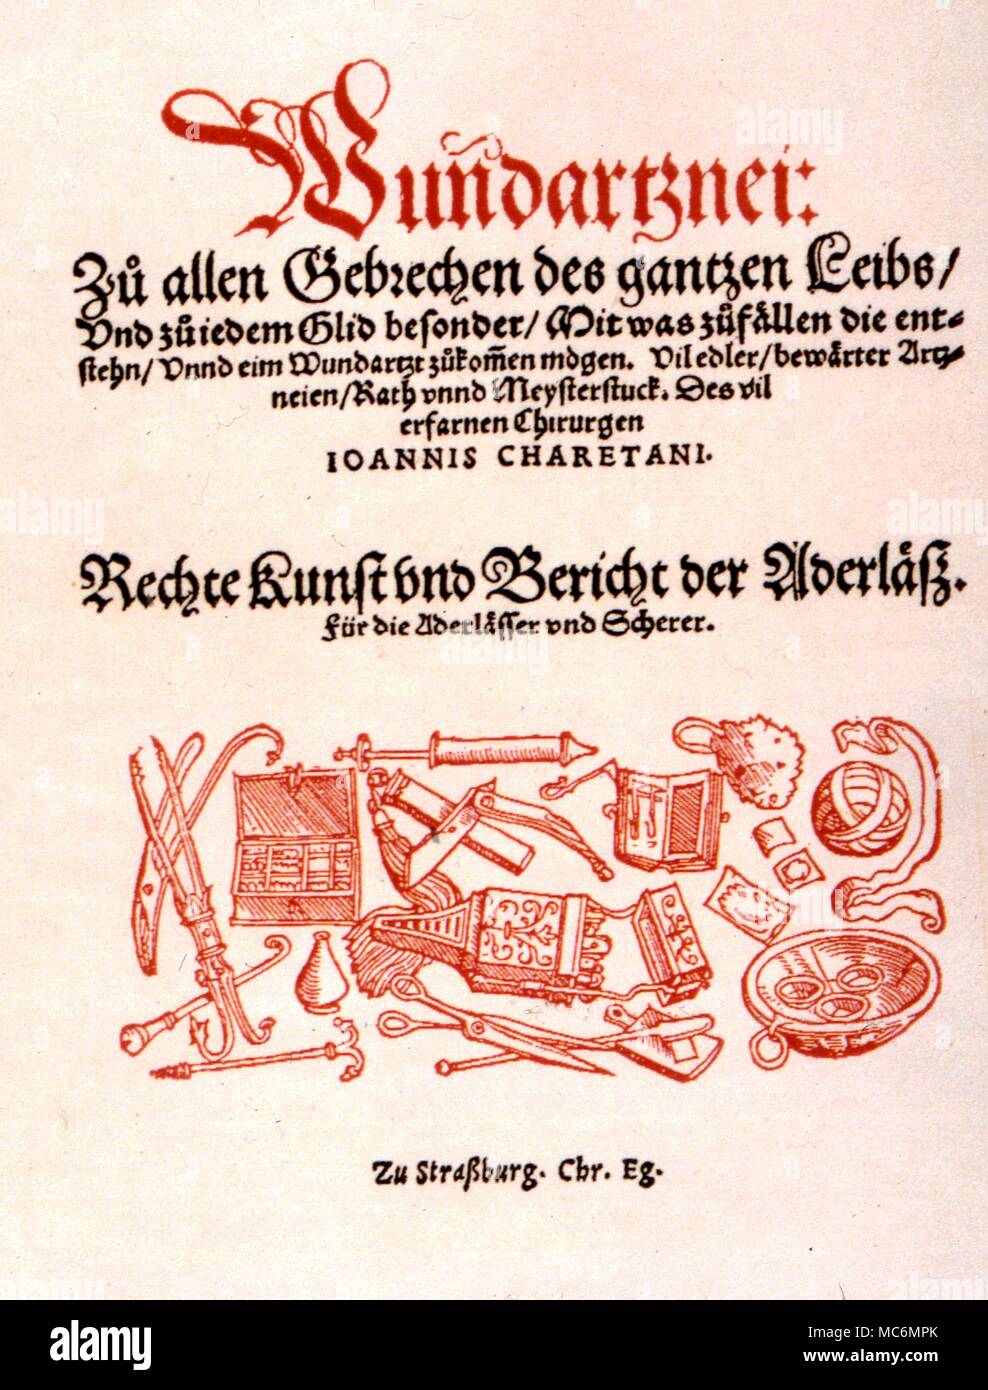 Wundartznei:
Zů allen Gebrechen des gantzen Leibs/
Vnd zů iedem Glid besonder/ Mit was zůfällen die ent-
stehn/ Vnnd eim Wundartzt zůkom̄en mögen. Vil edler/ bewärter Artz-
neien/ Rath vnnd Meysterstuck. Des vil
erfarnen Chirurgen
IOANNIS CHARETANI.
Rechte Kunst vnd Bericht der Aderläsz.
Für die Aderlässer vnd Scherer.
Zu Straßburg. Chr. Eg.
alamy
Image ID: MC6MPK
www.alamy.com